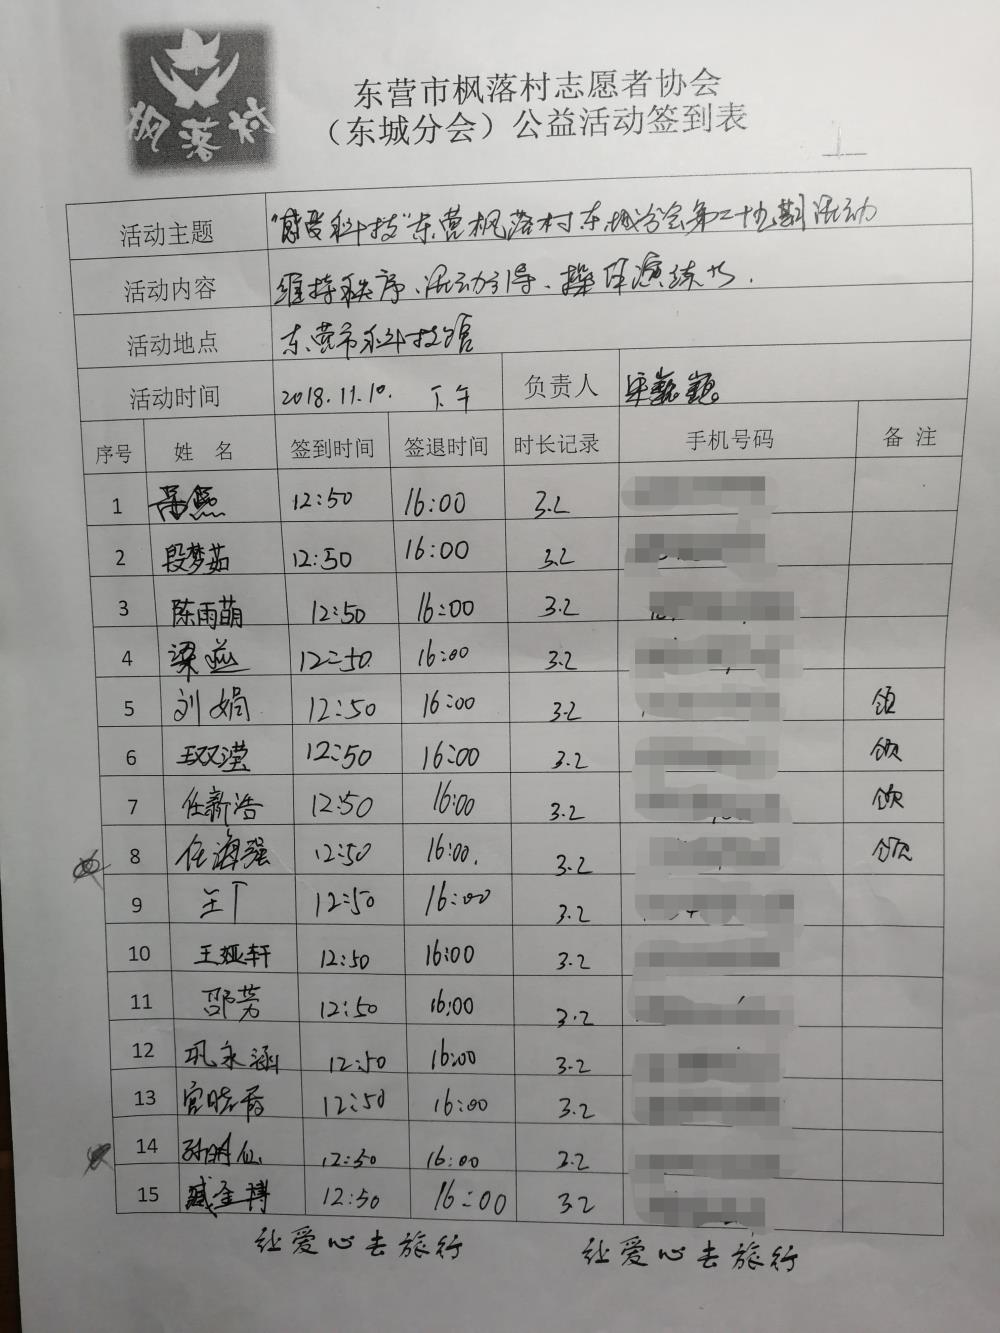 枫落村
东营市枫落村志愿者协会
（东城分会）公益活动签到表
活动主题 “感受科技”东营枫落村东城分会第二十九期活动
活动内容 维持秩序、活动引导、操作演练等.
活动地点 东营市科技馆
活动时间 2018.11.10. 下午 负责人
序号 姓 名 签到时间 签退时间 时长记录 手机号码 备 注
1 12:50 16:00 3.2
2 段梦茹 12:50 16:00 3.2
3 陈雨萌 12:50 16:00 3.2
4 梁燕 12:50. 16:00 3.2
5 刘娟 12:50 16:00 3.2 领
6 王双滢 12:50 16:00 3.2 领
7 任新浩 12:50 16:00 3.2 领
8 任海强 12:50 16:00. 3.2 领
9 王丁 12:50 16:00 3.2
10 王娅轩 12:50 16:00 3.2
11 邵芳 12:50 16:00 3.2
12 巩永涵 12:50 16:00 3.2
13 宫晓霞 12:50 16:00 3.2
14 孙明仙 12:50 16:00 3.2
15 臧金博 12:50 16:00 3.2
让爱心去旅行 让爱心去旅行